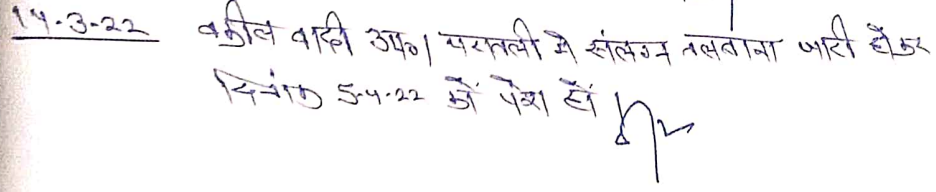 14-3-22 वकील वादी उप०। पत्रावली मे संलग्न तलवाना जारी होकर
दिनांक 5-4-22 को पेश हो